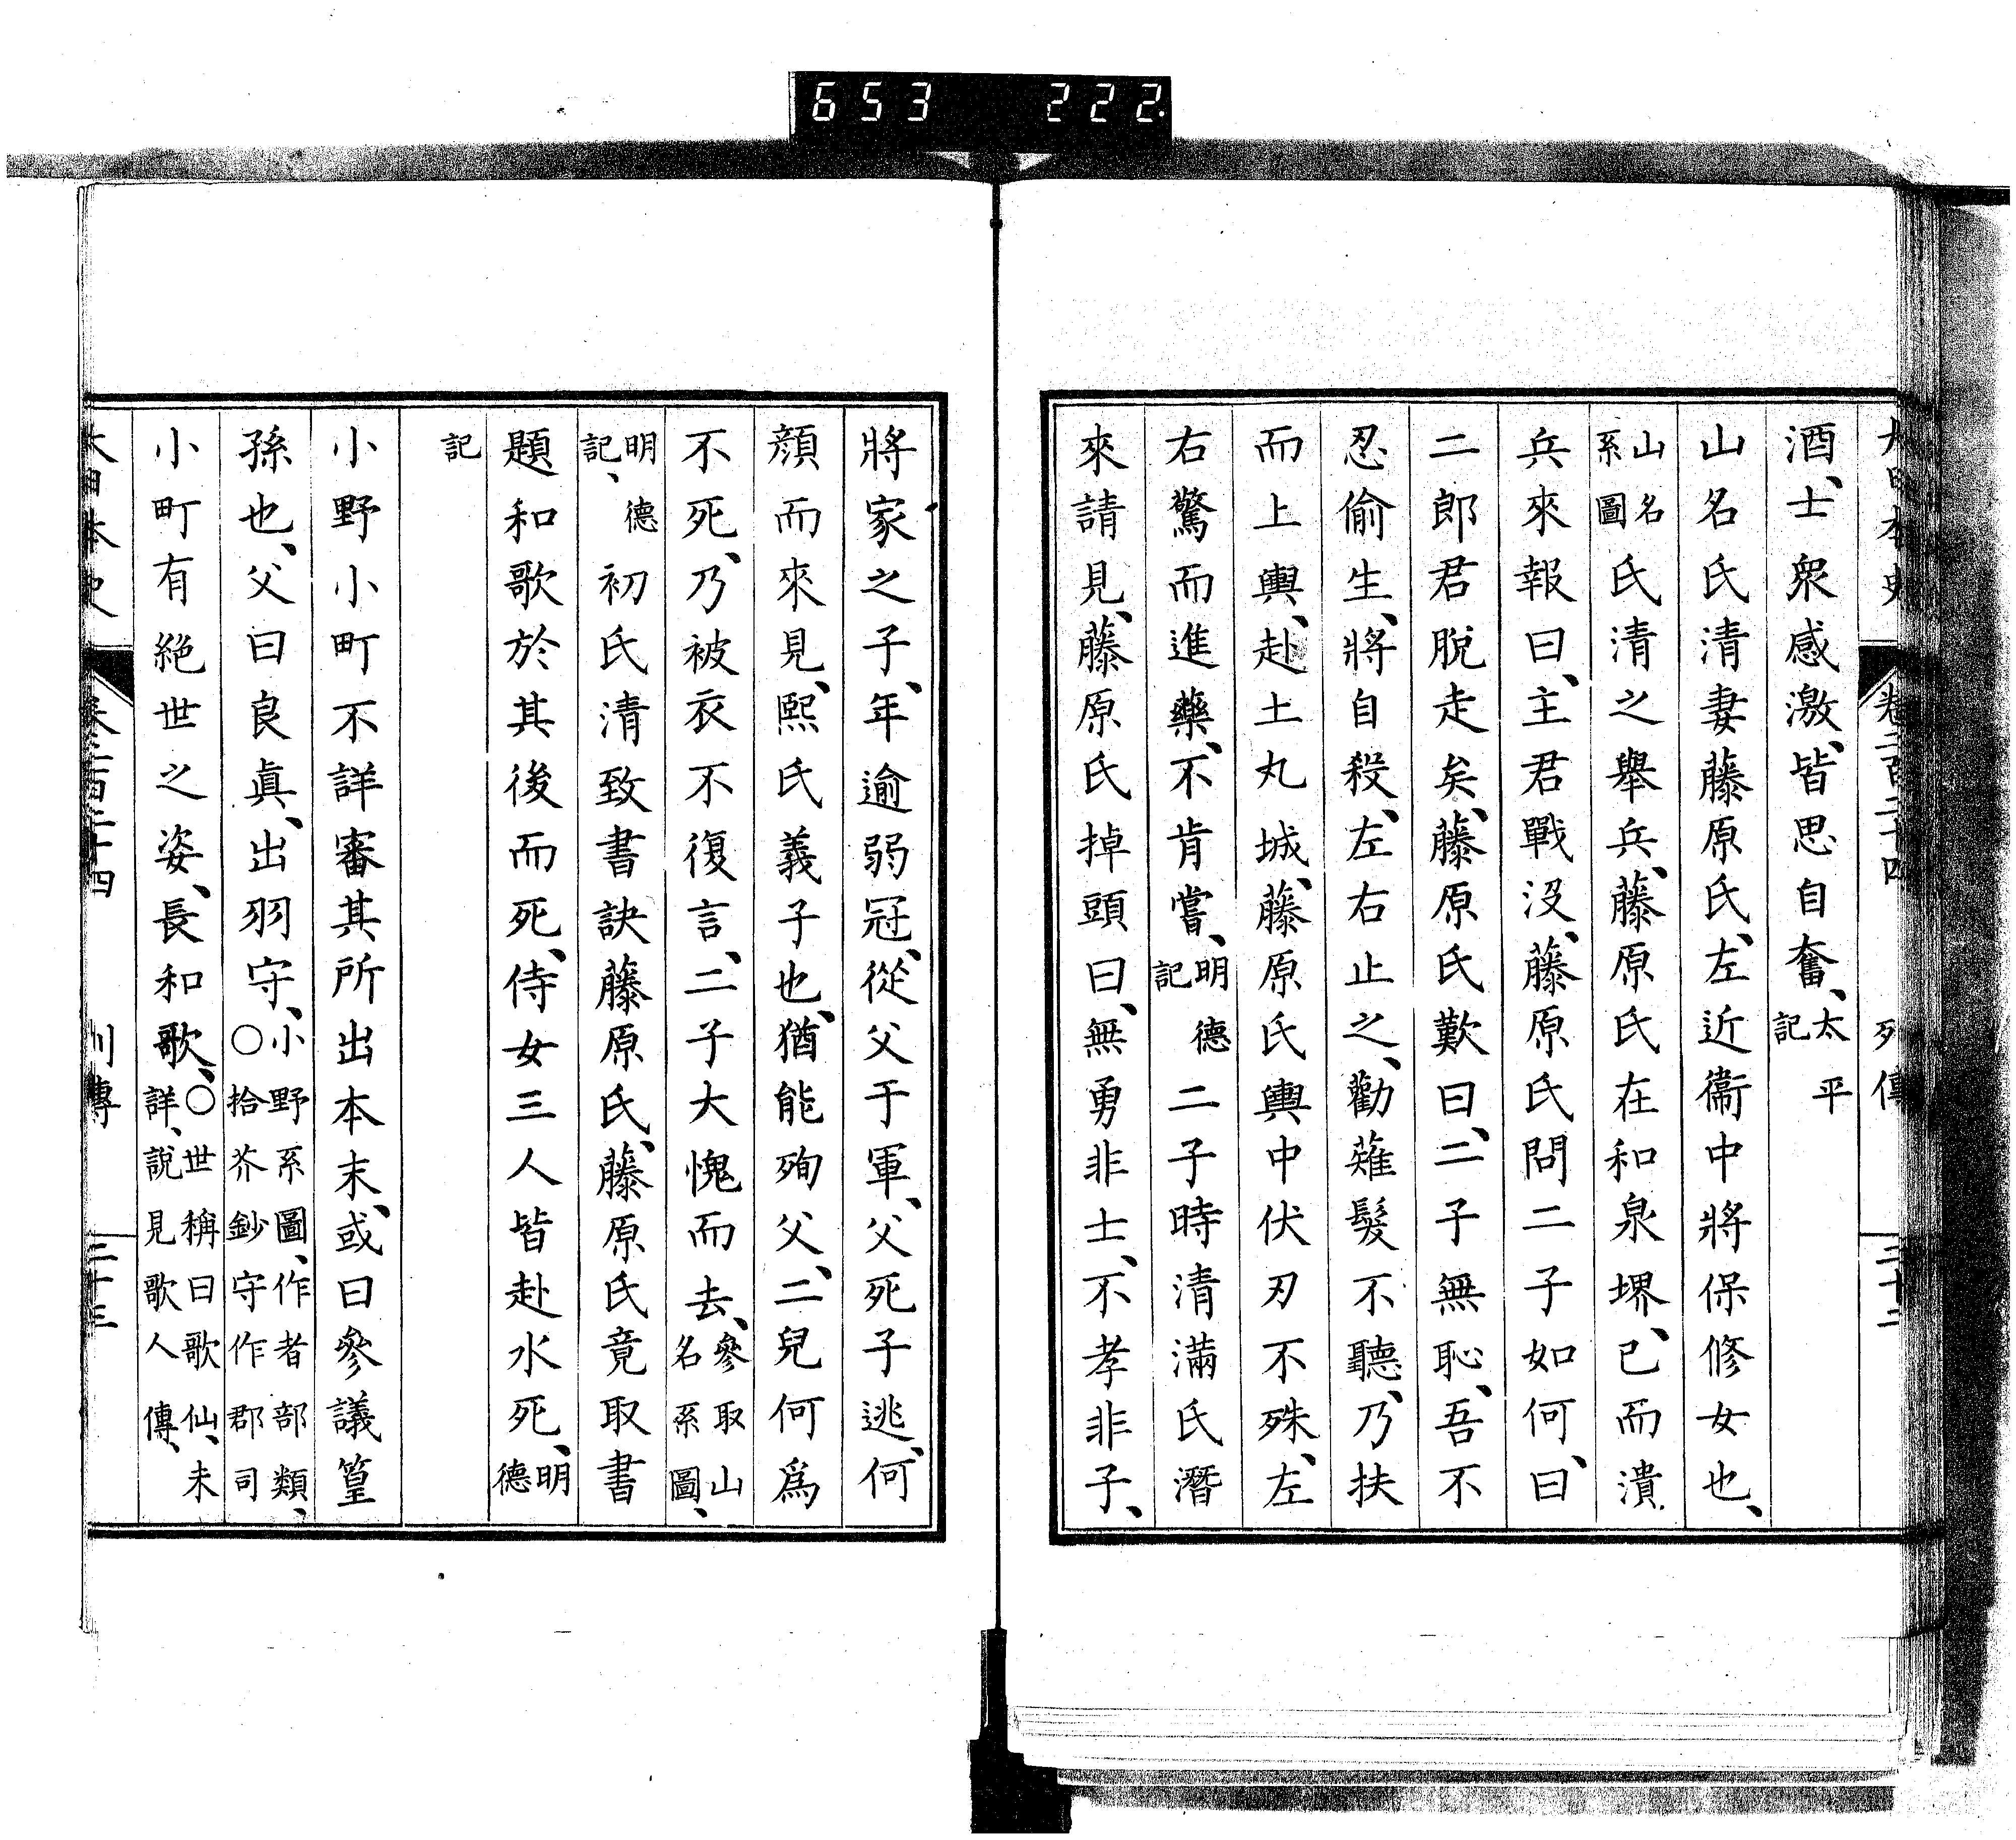 653 222.
大日本史 卷二百二十四 列傳 三十二
酒、士衆感激、皆思自奮、太平記
山名氏清妻藤原氏、左近衞中將保修女也、
山名系圖氏清之舉兵、藤原氏在和泉堺、已而潰
兵來報曰、主君戰沒、藤原氏問二子如何、曰、
二郎君脫走矣、藤原氏歎曰、二子無恥、吾不
忍偷生、將自殺、左右止之、勸薙髮不聽、乃扶
而上輿、赴土丸城、藤原氏輿中伏刃不殊、左
右驚而進藥、不肯嘗、明德記二子時清滿氏潛
來請見、藤原氏掉頭曰、無勇非士、不孝非子、
將家之子、年逾弱冠、從父于軍、父死子逃、何
顏而來見、熙氏義子也、猶能殉父、二兒何爲
不死、乃被衣不復言、二子大愧而去、參取山名系圖、
明德記、初氏清致書訣藤原氏、藤原氏竟取書
題和歌於其後而死、侍女三人皆赴水死、明德
記
小野小町不詳審其所出本末、或曰參議篁
孫也、父曰良眞、出羽守、小野系圖、作者部類、〇拾芥鈔守作郡司
小町有絕世之姿、長和歌、〇世稱曰歌仙、未詳、說見歌人傳、
大日本史 卷二百二十四 列傳 三十三